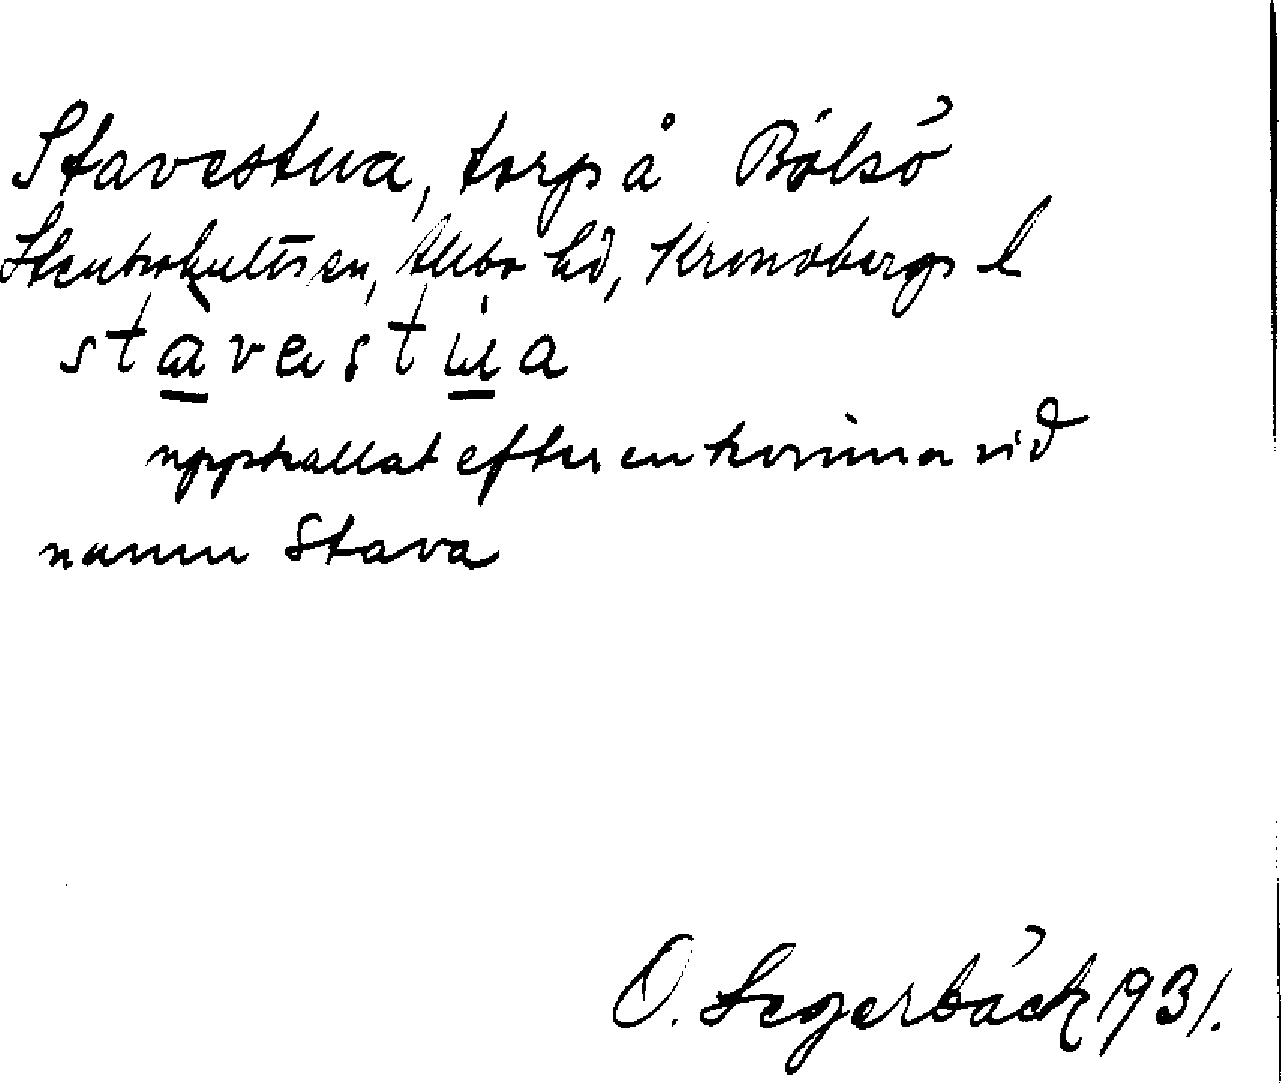 Stavestua, torp å Bölsö
Stenbrohults sn, Allbo hd, Kronobergs l
stàvestúa
uppkallat efter en kvinna vid
namn Stava
O. Segerbäck 1931.